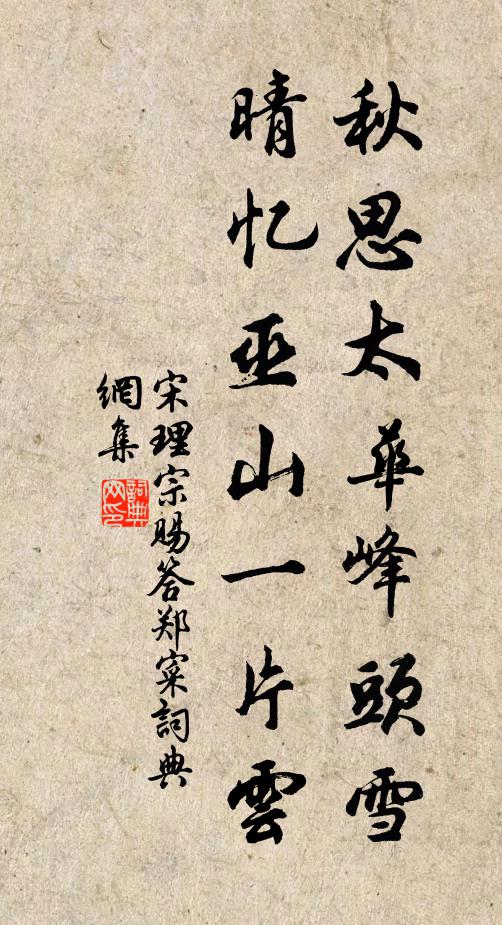 秋思太華峰頭雪
晴忆巫山一片雲
宋理宗赐答郑寀詞典
網集
詞典網印